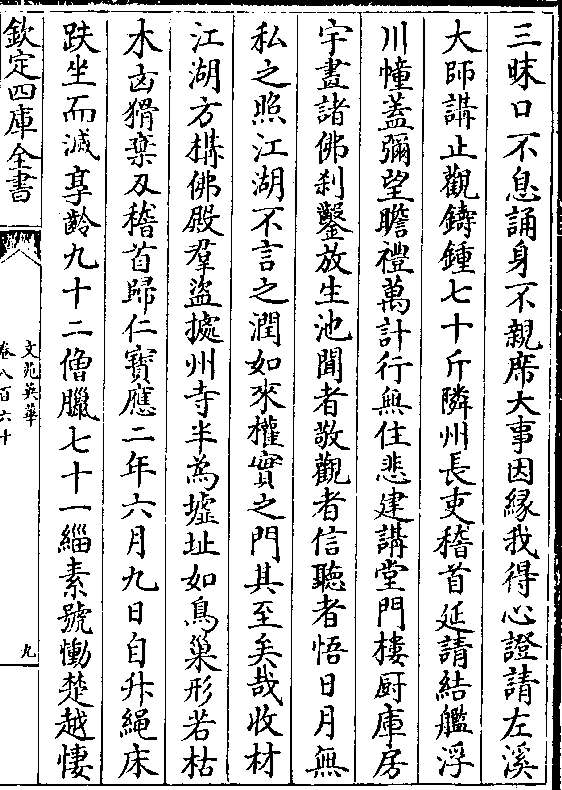 三昧口不息誦身不親席大事因縁我得心證請左溪
大師講止觀鑄鍾七十斤隣州長吏稽首延請結艦浮
川幢蓋彌望瞻禮萬計行無住悲建講堂門樓厨庫房
宇畫諸佛刹鑿放生池聞者敬觀者信聽者悟日月無
私之照江湖不言之潤如來權實之門其至矣哉收材
江湖方搆佛殿羣盜㨿州寺半為墟址如鳥巢形若枯
木凶猾棄刄稽首歸仁寶應二年六月九日自升繩床
趺坐而滅享齡九十二僧臘七十一緇素號慟楚越悽
欽定四庫全書
文苑英華
卷八百六十
九